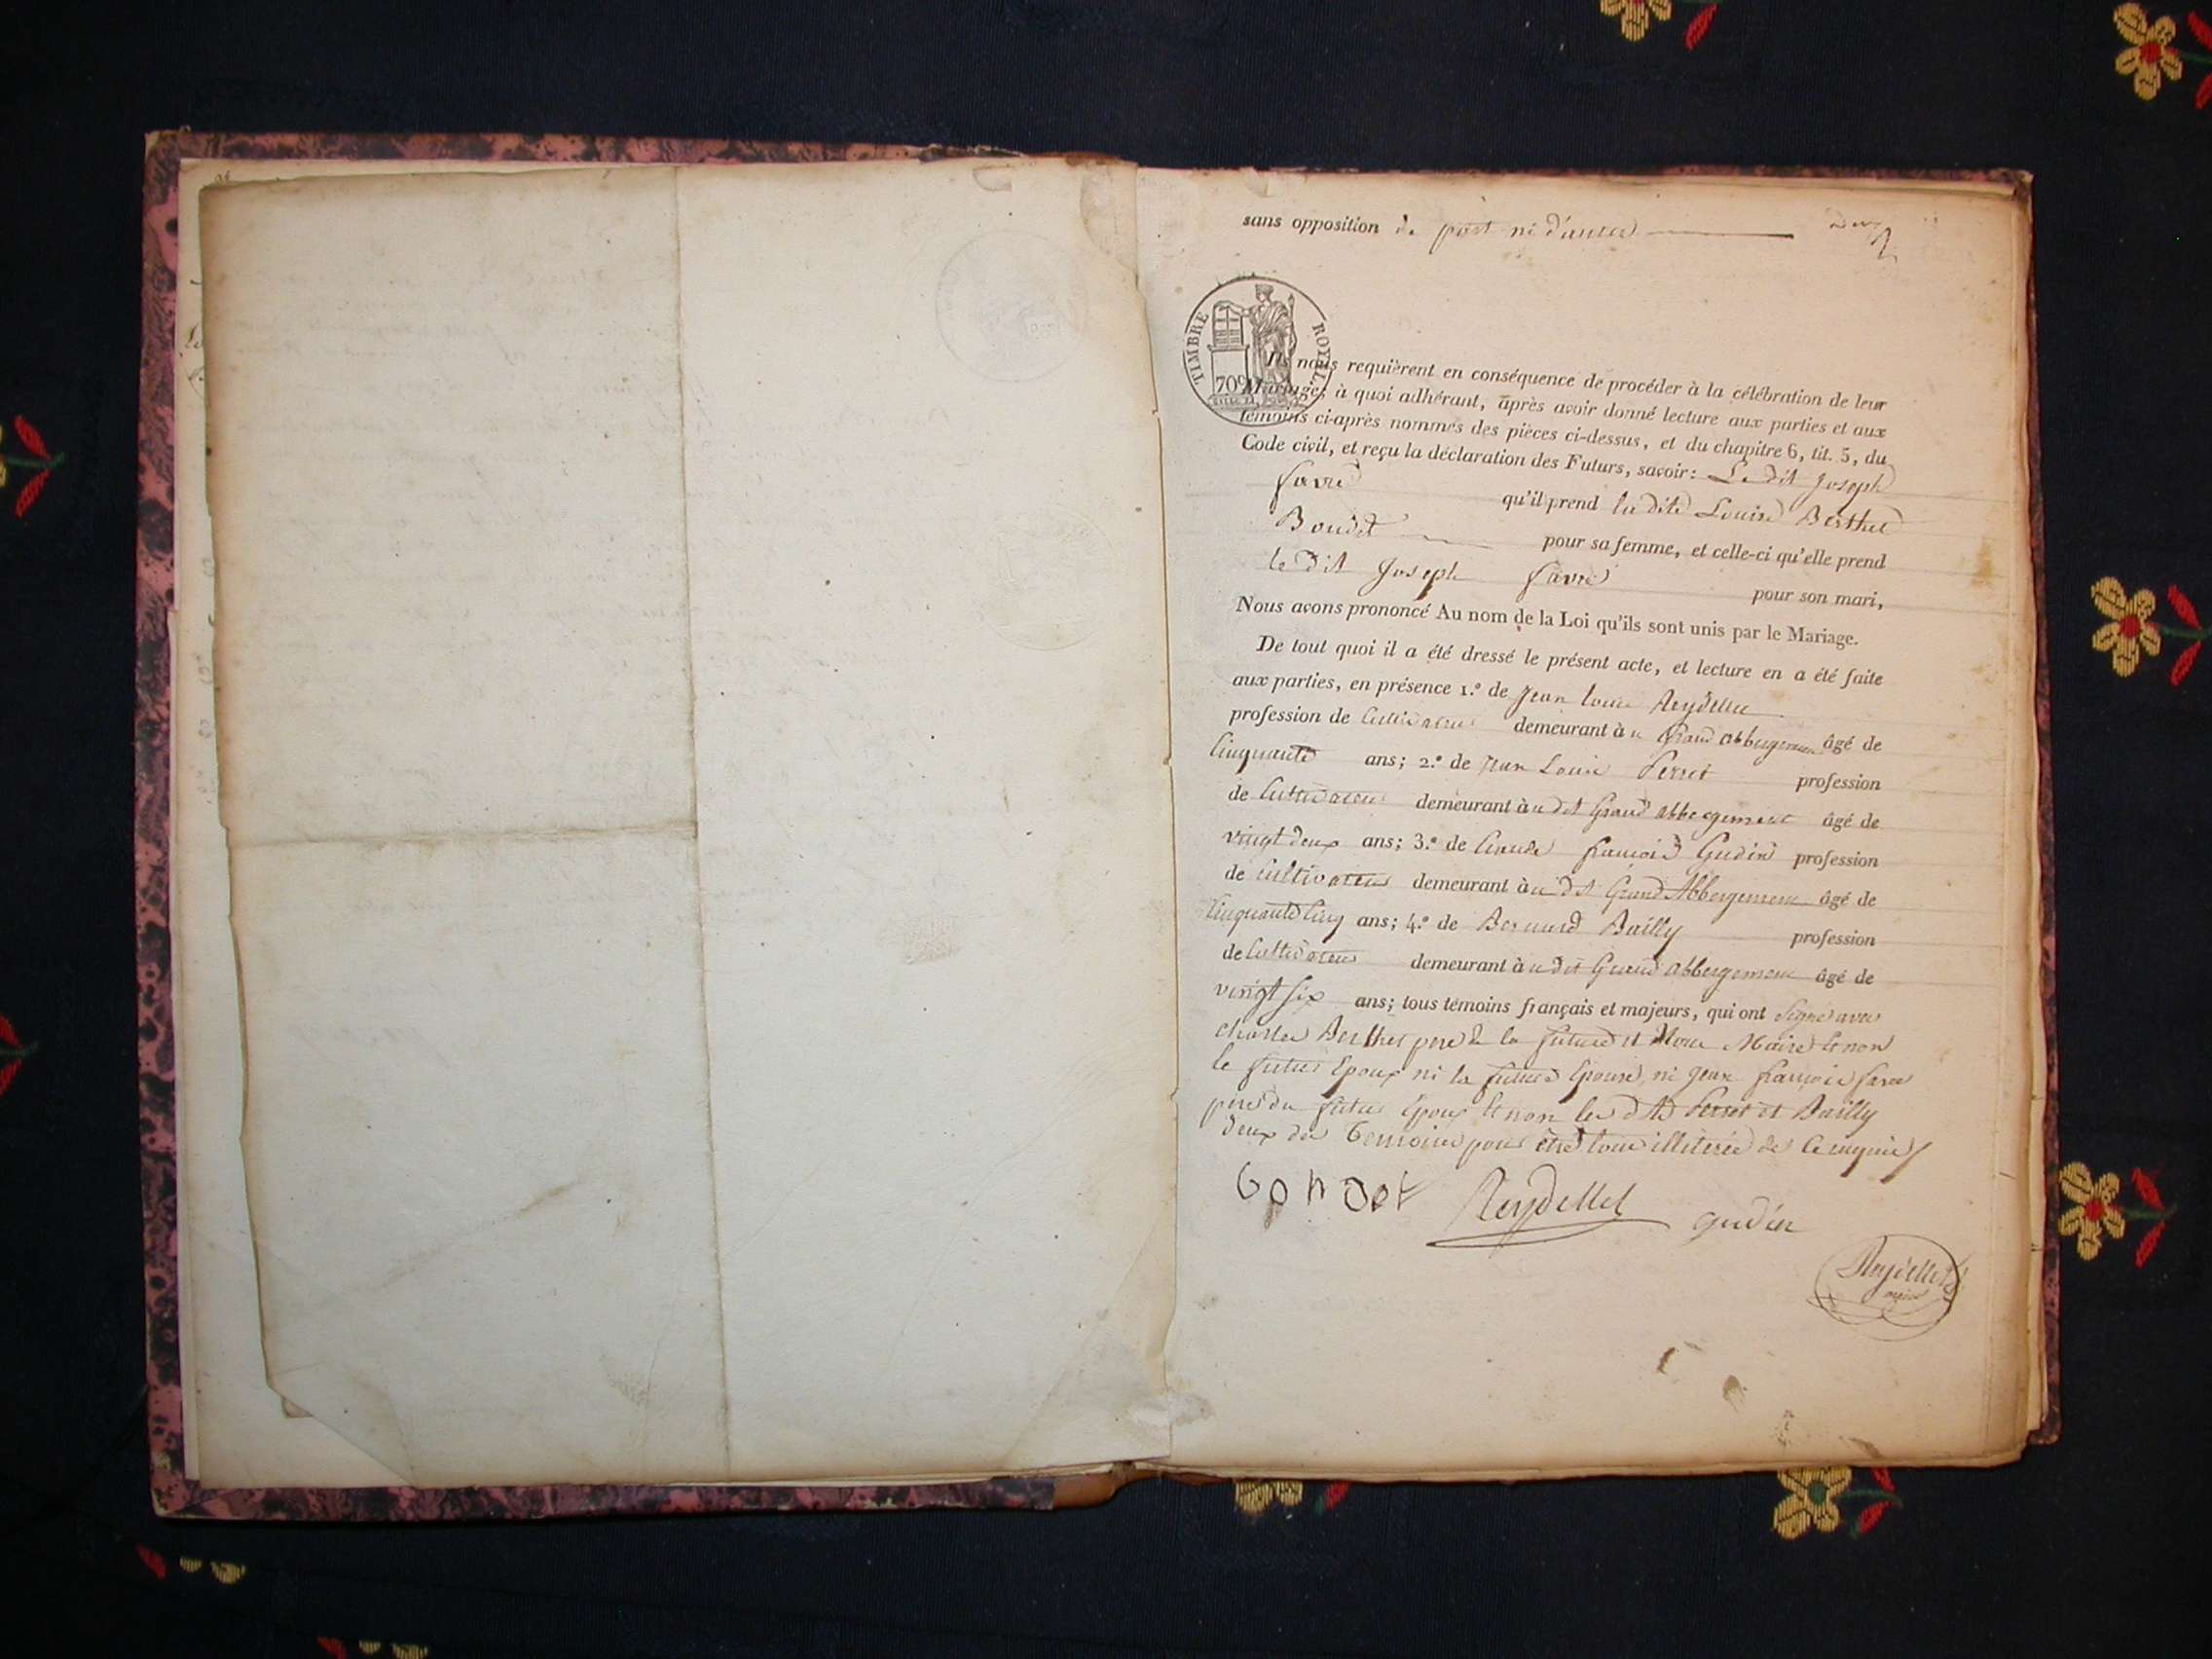 sans opposition de part ni d'autre
Deux
2
TIMBRE ROYAL
70c
Ils nous requièrent en conséquence de procéder à la célébration de leur
Mariage; à quoi adhérant, après avoir donné lecture aux parties et aux
témoins ci-après nommés des pièces ci-dessus, et du chapitre 6, tit. 5, du
Code civil, et reçu la déclaration des Futurs, savoir: Le dit Joseph
favre qu'il prend la dite Louise Berthet
Bondet pour sa femme, et celle-ci qu'elle prend
le dit Joseph favre pour son mari,
Nous avons prononcé Au nom de la Loi qu'ils sont unis par le Mariage.
De tout quoi il a été dressé le présent acte, et lecture en a été faite
aux parties, en présence 1.º de Jean Louis Reydellet
profession de Cultivateur demeurant à u Grand abbergement âgé de
Cinquante ans; 2.º de Jean Louis Perret profession
de Cultivateur demeurant à u dit Grand abbergement âgé de
vingt deux ans; 3.º de Claude françois Gudin profession
de Cultivateur demeurant à u dit Grand Abbergement âgé de
Cinquante Cinq ans; 4.º de Bernard Bailly profession
de Cultivateur demeurant à u dit Grand abbergement âgé de
vingt six ans; tous témoins français et majeurs, qui ont signé avec
charles Berthet pere de la future et Nous Maire et non
le futur Epoux ni la future Epouse, ni Jean françois favre
pere du futur Epoux et non les dits Perret et Bailly
deux des temoins pour être tous illiterés de Ce enquis
Bondet Reydellet gudin
Reydellet
maire